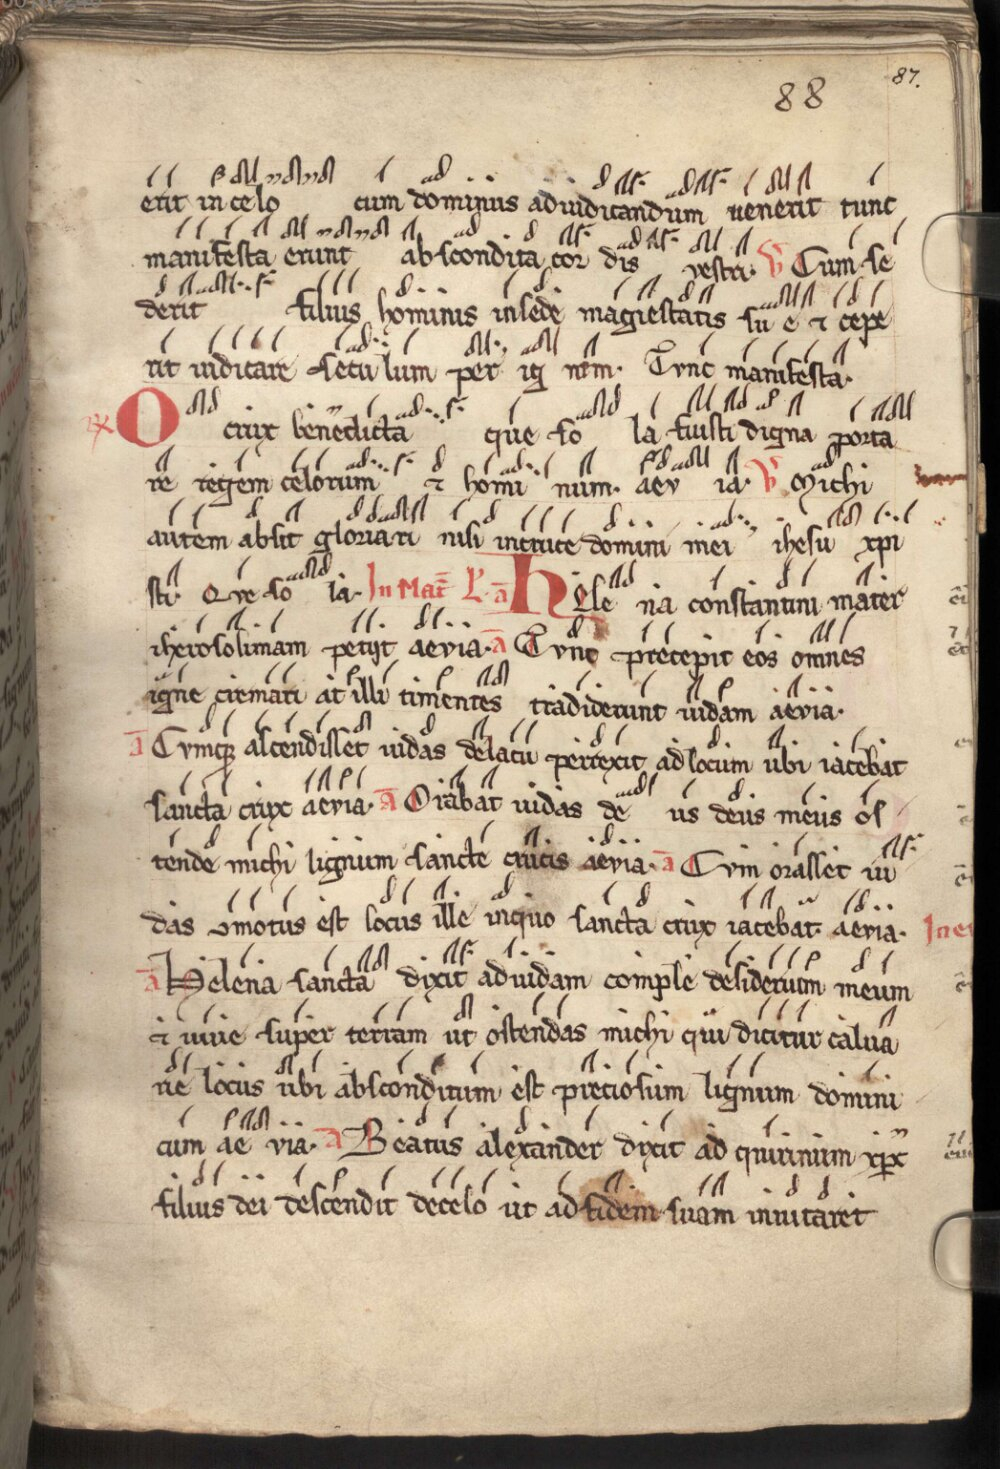 87.
88
erit in celo cum dominus ad iudicandum uenerit tunc
manifesta erunt abscondita cor dis vestri. V Cum se
derit filius hominis in sede magiestatis su e & cepe
rit iudicare secu lum per ig nem. Tvnc manifesta.
R O crux benedicta que so la fuisti digna porta
re regem celorum & homi num. aev ia. V Michi
autem absit gloriari nisi in cruce domini mei ihesu xpi
sti. Qve so la. In Mat L. a HEle na constantini mater
iherosolimam petijt aevia. a Tvnc precepit eos omnes
igne cremari at illi timentes tradiderunt iudam aevia.
a Cvmq; ascendisset iudas delacu perrexit ad locum ubi iacebat
sancta crux aevia. a Orabat iudas de us deus meus os
tende michi lignum sancte crucis aevia. a Cvm orasset iu
das omotus est locus ille in quo sancta crux iacebat. aevia.
a Helena sancta dixit ad iudam comple desiderium meum
& uiue super terram ut ostendas michi qui dicitur calua
rie locus ubi absconditum est preciosum lignum domini
cum ae via. a Beatus alexander dixit ad quirinum xpc
filius dei descendit de celo ut ad fidem suam inuitaret